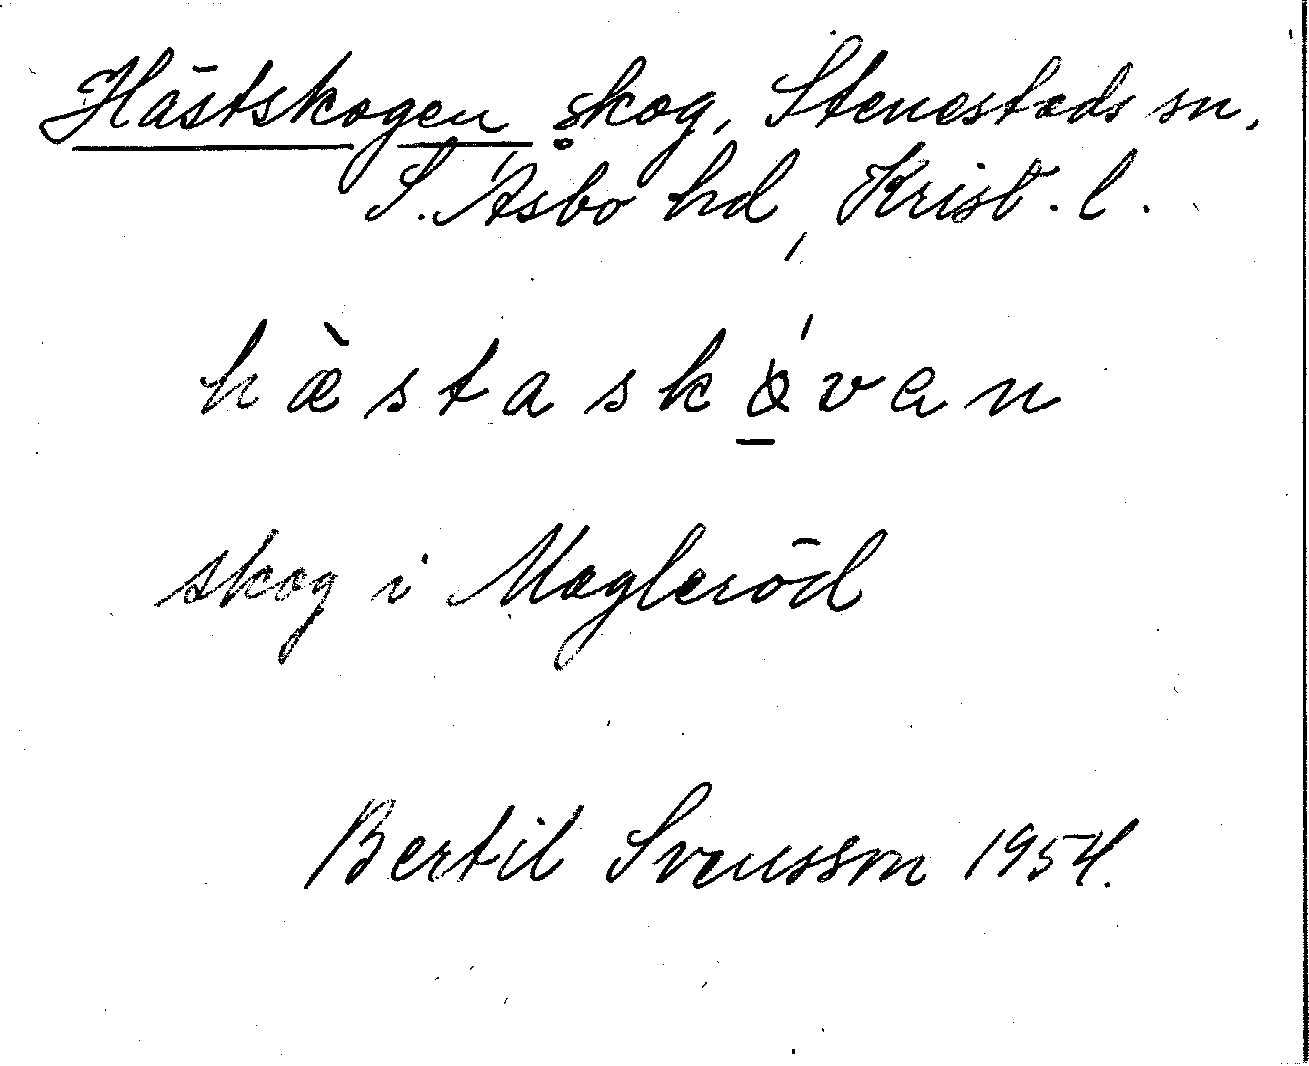 Hästskogen skog, Stenestads sn.
S. Åsbo hd, Krist. l.
hæ̀staskǿvan
skog i Magleröd
Bertil Svensson 1954.